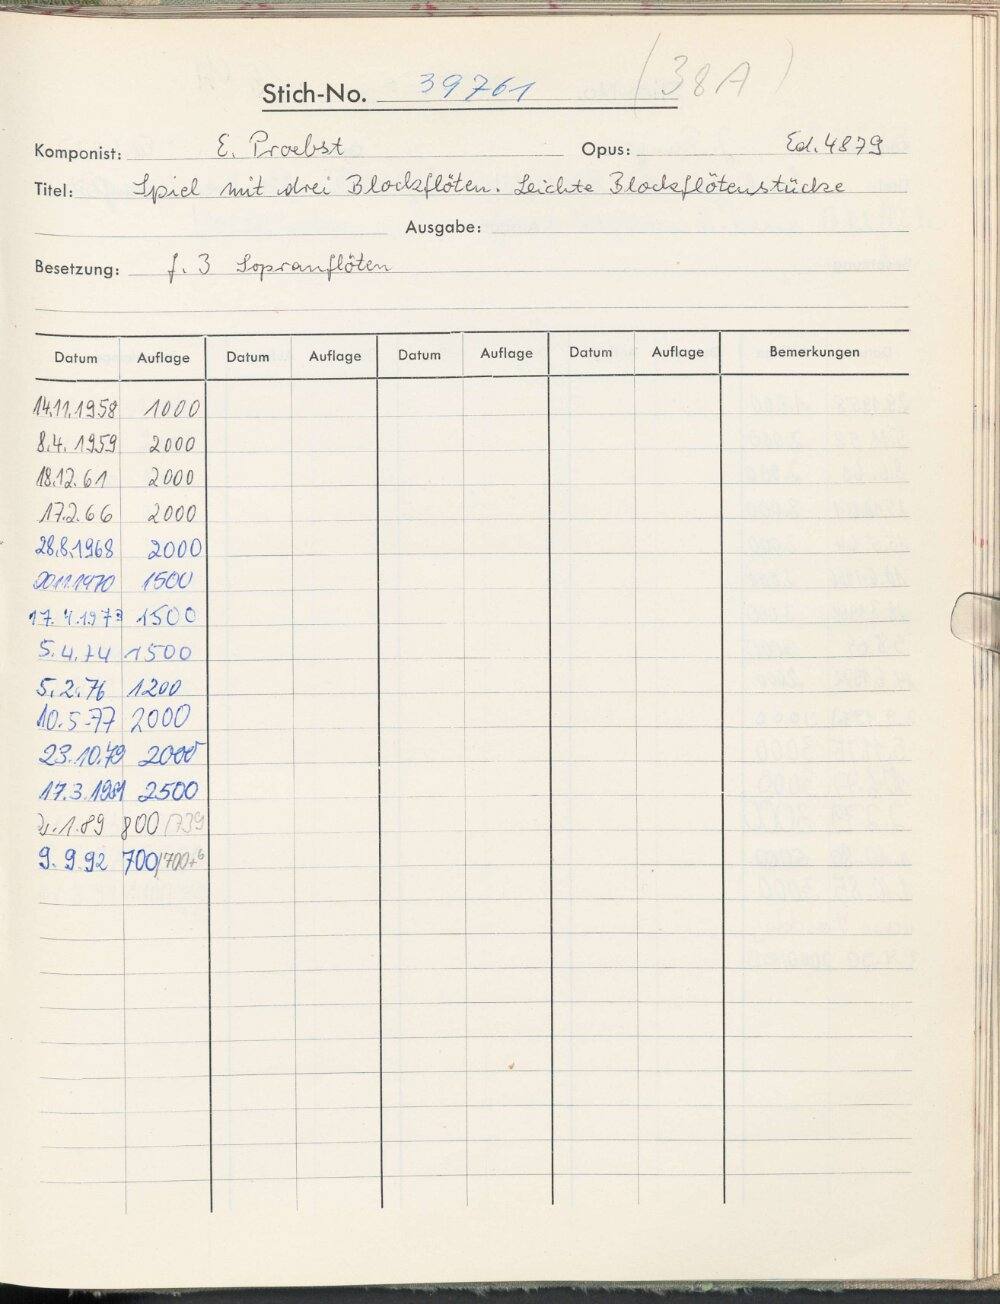 (38A)
Stich-No. 39761
Komponist: E. Proebst Opus: Ed. 4879
Titel: Spiel mit drei Blockflöten. Leichte Blockflötenstücke
Ausgabe:
Besetzung: f. 3 Sopranflöten
Datum Auflage Datum Auflage Datum Auflage Datum Auflage Bemerkungen
14.11.1958 1000
8.4.1959 2000
18.12.61 2000
17.2.66 2000
28.8.1968 2000
20.11.1970 1500
17.4.1973 1500
5.4.74 1500
5.2.76 1200
10.5.77 2000
23.10.79 2000
17.3.1981 2500
1.89 800/739
9.9.92 700/700+6